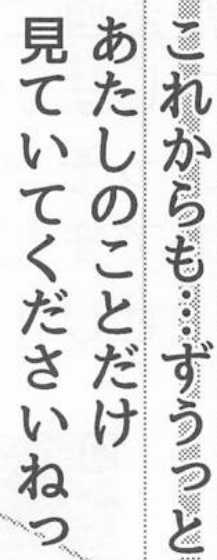 これからも…ずうっと
あたしのことだけ
見ていてくださいねっ